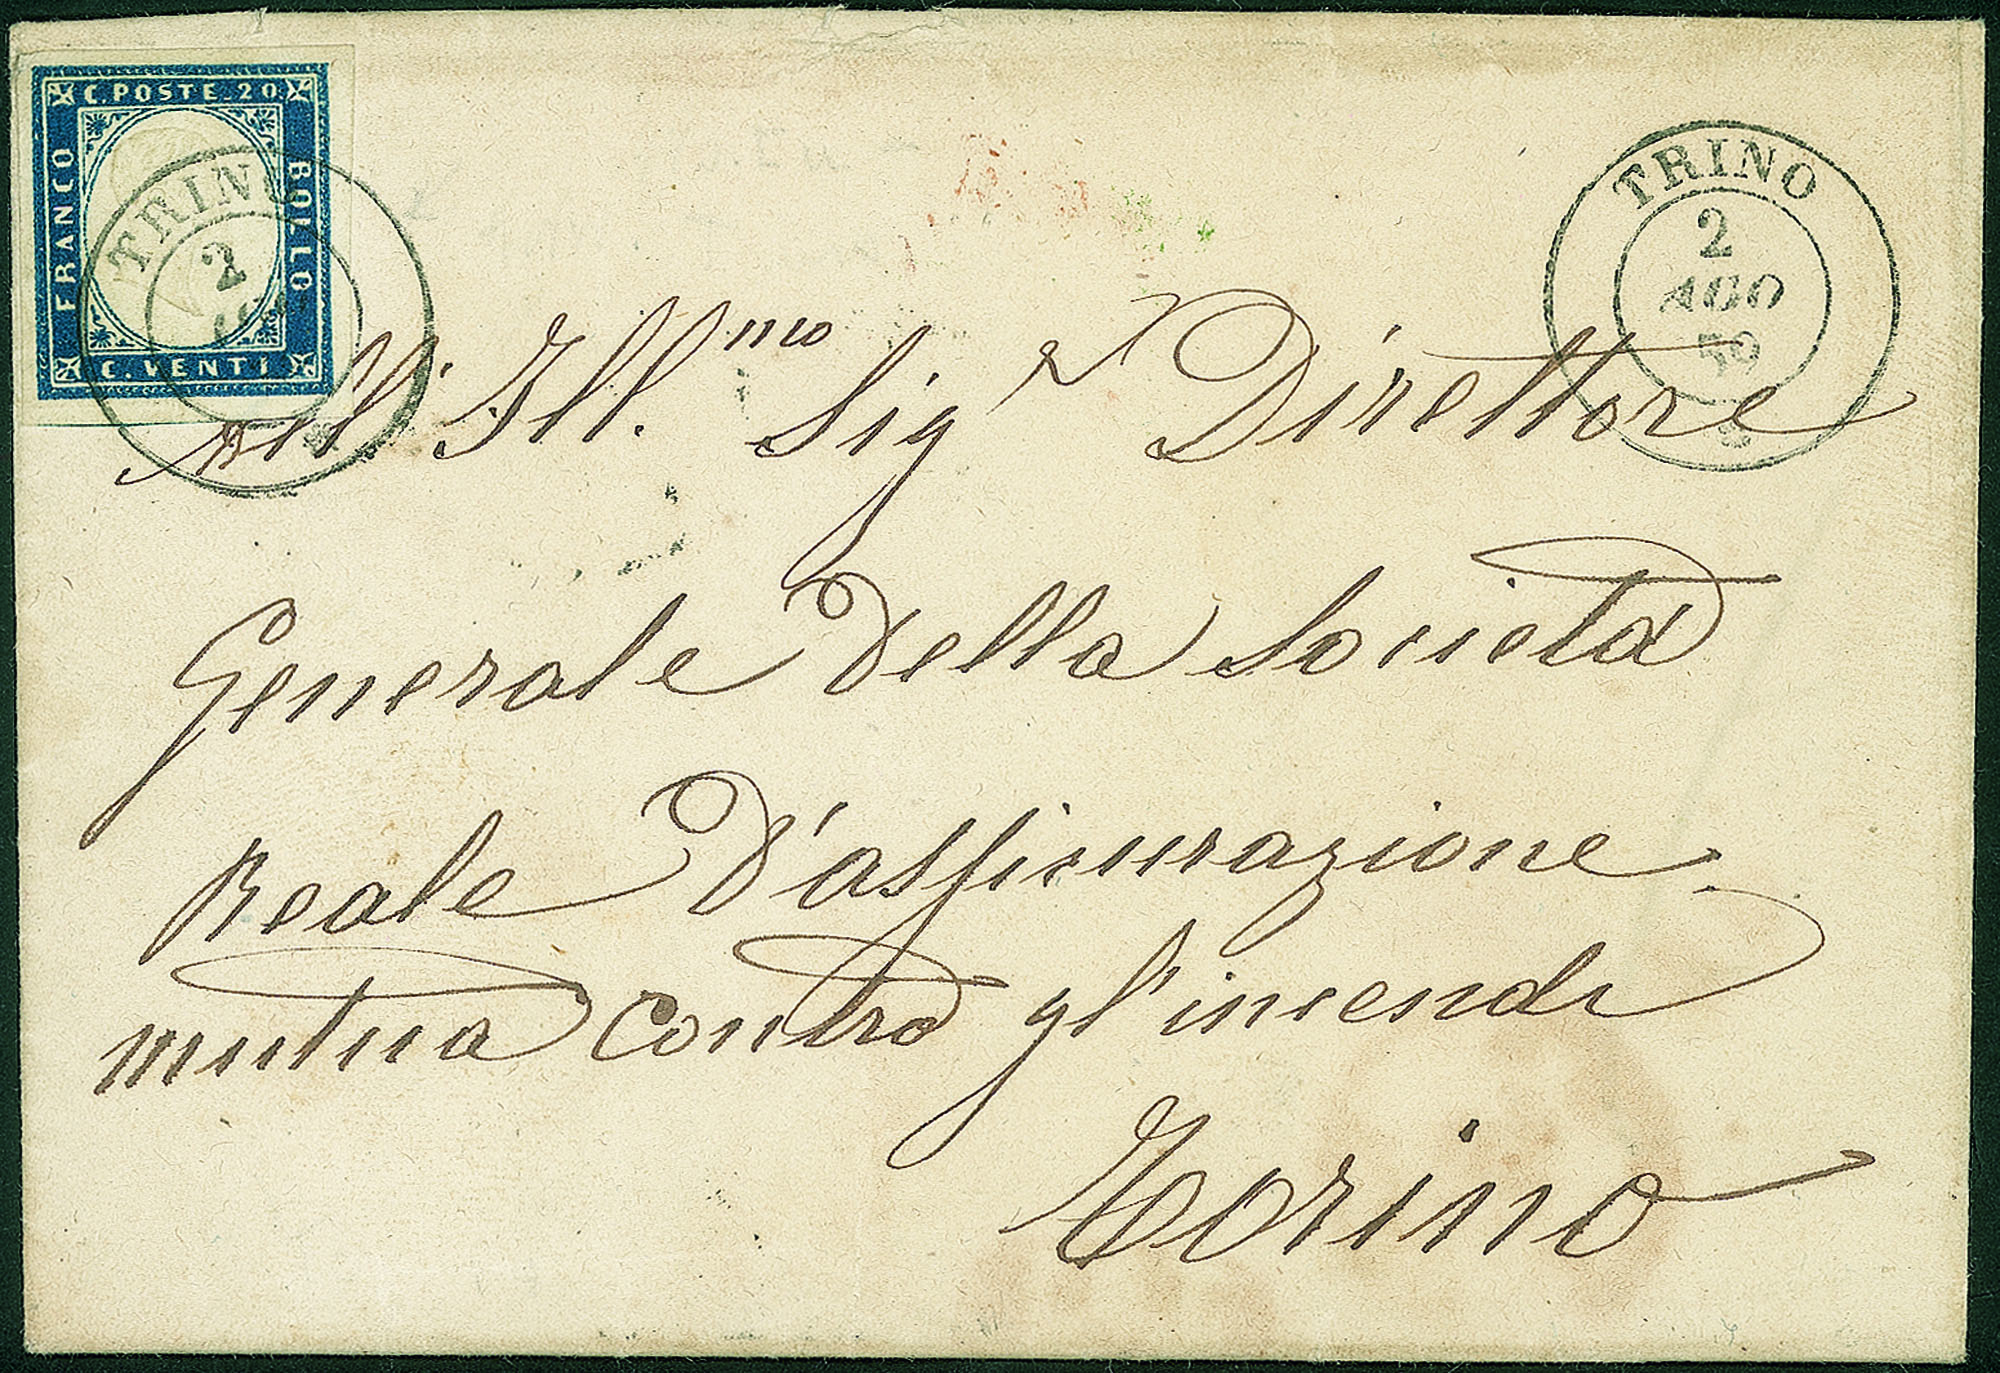 C. POSTE. 20
FRANCO
BOLLO
C. VENTI
TRINO
2
TRINO
2
AGO
59
All' Ill.mo Sigr Direttore
Generale della Società
Reale d'assicurazione
mutua contro gl'incendi
Torino